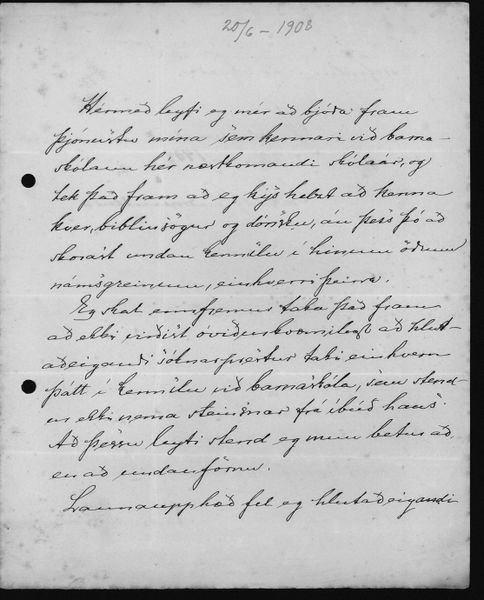 20/6 - 1908
Hérmeð leyfi eg mér að bjóða fram
þjónustu mína sem kennari við barna-
skólann hér næstkomandi skólaár, og
tek það fram að eg kýs helzt að kenna
kver, bibliusögur og dönsku, án þess þó að
skorast undan kennslu í hinum öðrum
námsgreinum, einhverri þeirra.
Eg skal ennfremur taka það fram
að ekki virðist óviðurkvæmilegt að hlut-
aðeigandi sóknarprestur taki einhvern
þátt í kennslu við barnaskóla, sem stend-
ur ekki nema steinsnar frá íbúð hans.
Að þessu leyti stend eg mun betur að,
en að undanförnu.
Launaupphæð fel eg hlutaðeigandi